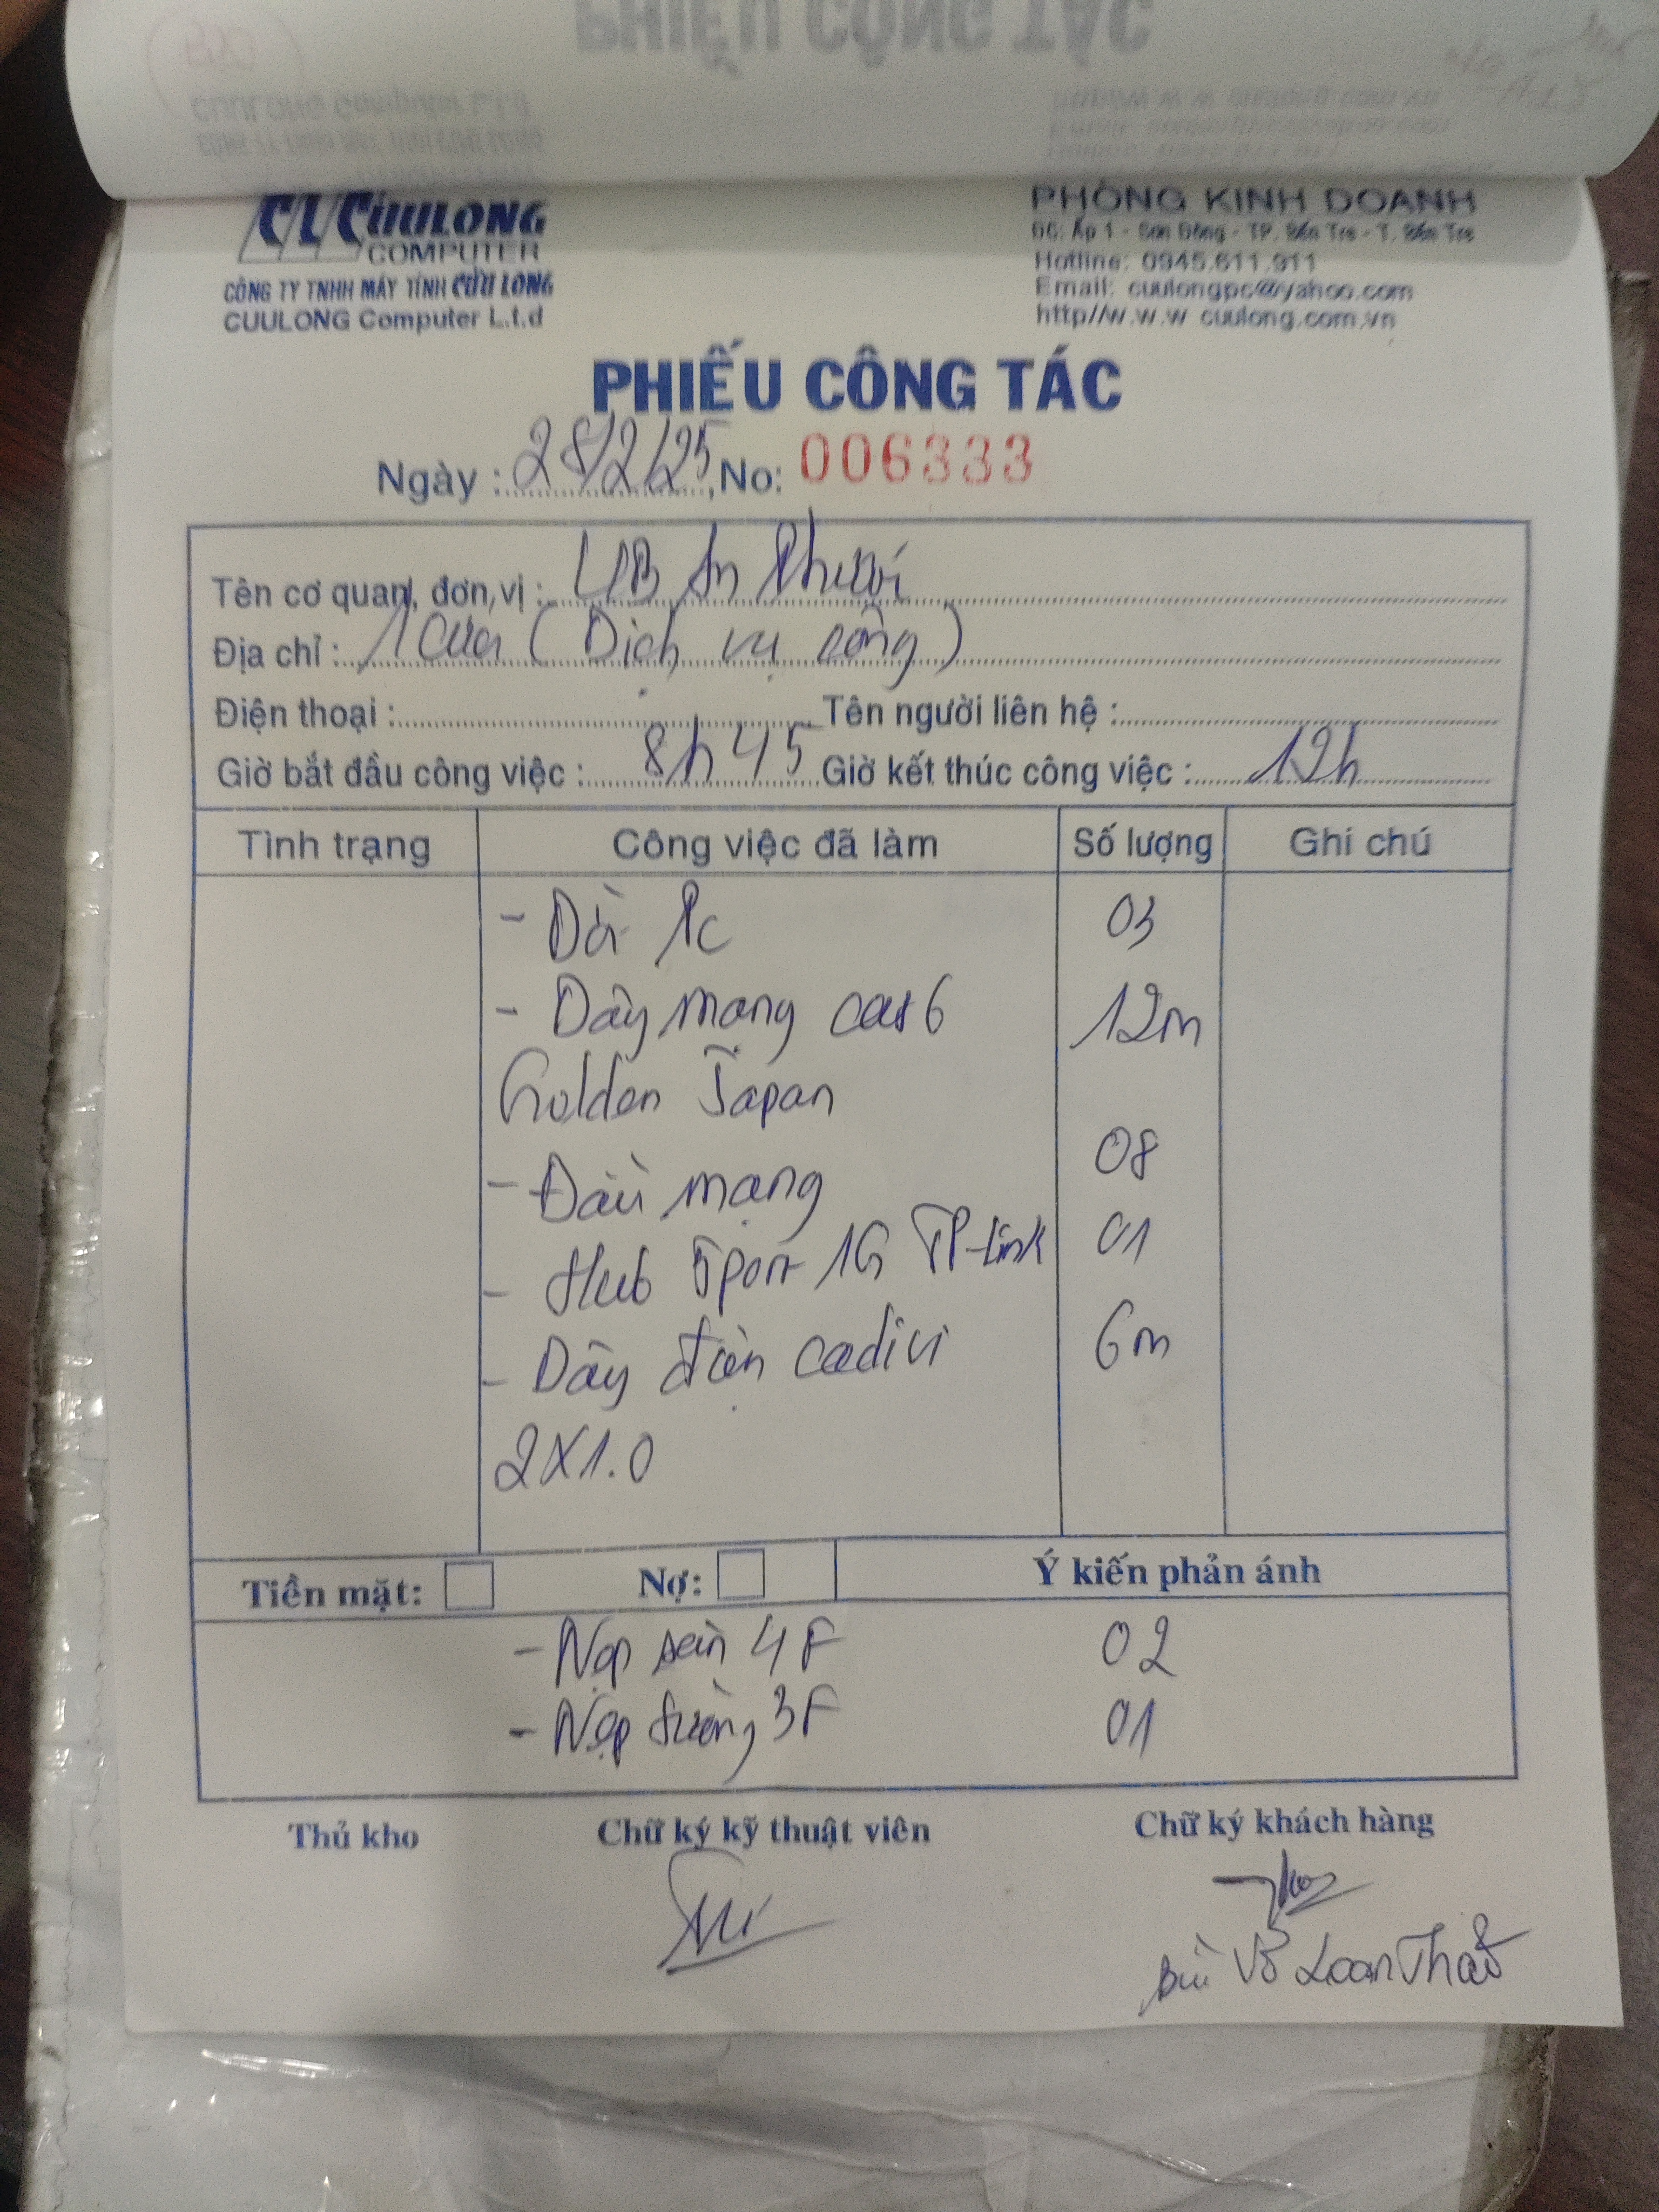 CL CỬULONG
COMPUTER
CÔNG TY TNHH MÁY TÍNH CỬU LONG
CUULONG Computer L.t.d
PHÒNG KINH DOANH
ĐC: Ấp 1 - Sơn Đông - TP. Bến Tre - T. Bến Tre
Hotline: 0945.611.911
Email: cuulongpc@yahoo.com
http//w.w.w cuulong.com.vn
PHIẾU CÔNG TÁC
Ngày : 28/2/25, No: 006333
Tên cơ quan, đơn vị : UB An Phước
Địa chỉ : 1 Cửa ( Dịch vụ công )
Điện thoại : Tên người liên hệ :
Giờ bắt đầu công việc : 8h45 Giờ kết thúc công việc : 12h
Tình trạng Công việc đã làm Số lượng Ghi chú
- Dời Pc 03
- Dây mạng cat6 12m
Golden Japan
- Đầu mạng 08
- Hub 5port 1G TP-Link 01
- Dây điện cadivi 6m
2X1.0
Tiền mặt: Nợ: Ý kiến phản ánh
- Nẹp sàn 4F 02
- Nẹp tường 3F 01
Thủ kho Chữ ký kỹ thuật viên Chữ ký khách hàng
Bùi Võ Loan Thảo